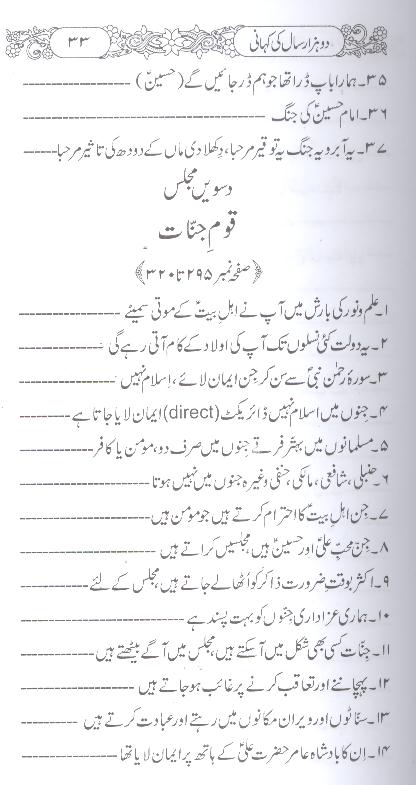 دو ہزار سال کی کہانی ۳۳
۳۵۔ ہمارا باپ ڈرا تھا جو ہم ڈر جائیں گے (حسینؑ) ----------------
۳۶۔ امام حسینؑ کی جنگ ----------------
۳۷۔ یہ آبرو یہ جنگ یہ توقیر مرحبا، دِکھلا دی ماں کے دودھ کی تاثیر مرحبا -----
دسویں مجلس
قومِ جنّات
﴿صفحہ نمبر ۲۹۵ تا ۳۲۰﴾
۱۔ علم و نور کی بارش میں آپ نے اہلِ بیتؑ کے موتی سمیٹے ----------------
۲۔ یہ دولت کئی نسلوں تک آپ کی اولاد کے کام آتی رہے گی ----------------
۳۔ سورۂ رحمٰن نبیؐ سے سن کر جن ایمان لائے، اِسلام نہیں ----------------
۴۔ جنوں میں اسلام نہیں ڈائریکٹ (direct) ایمان لایا جاتا ہے --------
۵۔ مسلمانوں میں بہتّر فرقے جنوں میں صرف دو، مومن یا کافر ----------------
۶۔ حنبلی، شافعی، مالکی، حنفی وغیرہ جنوں میں نہیں ہوتا ----------------
۷۔ جن اہلِ بیتؑ کا احترام کرتے ہیں جو مومن ہیں ----------------
۸۔ جن محبِّ علیؑ اور حسینؑ ہیں، مجلسیں کراتے ہیں ----------------
۹۔ اکثر بوقتِ ضرورت ذاکر کو اُٹھالے جاتے ہیں، مجلس کے لئے ------------
۱۰۔ ہماری عزاداری جنّوں کو بہت پسند ہے ----------------
۱۱۔ جنّات کسی بھی شکل میں آسکتے ہیں، مجلس میں آگے بیٹھتے ہیں ------------
۱۲۔ پہچاننے اور تعاقب کرنے پر غائب ہوجاتے ہیں ----------------
۱۳۔ سنّاٹوں اور ویران مکانوں میں رہتے اور عبادت کرتے ہیں ------------
۱۴۔ اِن کا بادشاہ عامر حضرت علیؑ کے ہاتھ پر ایمان لایا تھا ------------